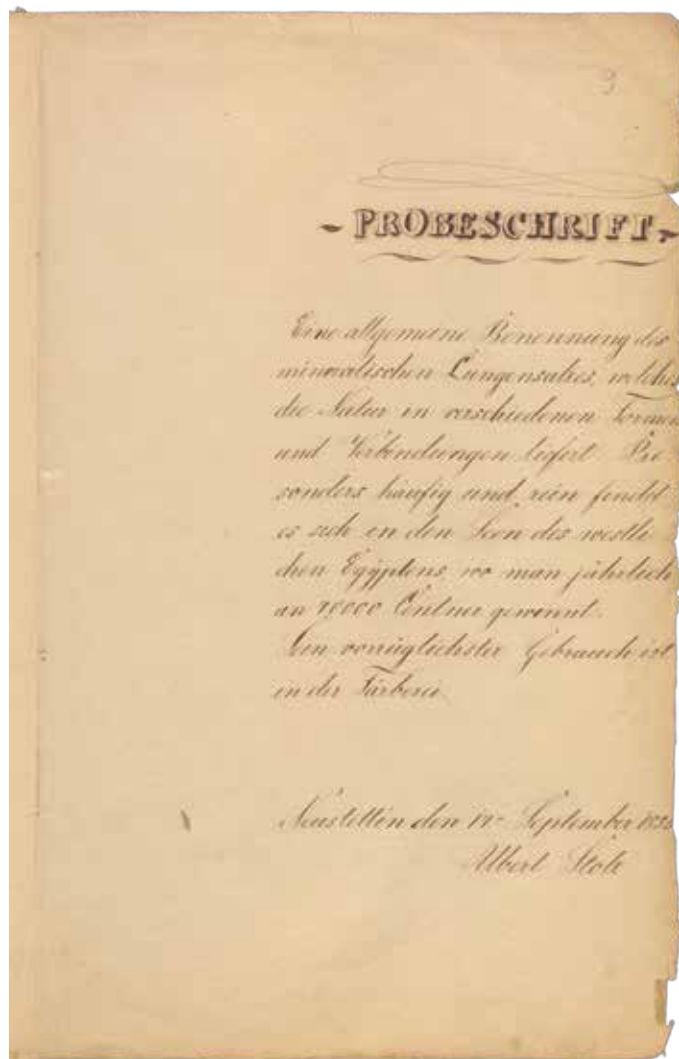 9
- PROBESCHRIFT -
Eine allgemeine Benennung des
mineralischen Laugensalzes, welches
die Natur in verschiedenen Formen
und Verbindungen liefert. Be
sonders häufig und rein findet
es sich in den Seen des westli
chen Egÿptens, wo man jährlich
an Centner gewinnt.
Sein vorzüglichster Gebrauch ist
in der Färberei.
Neustettin den September
Albert